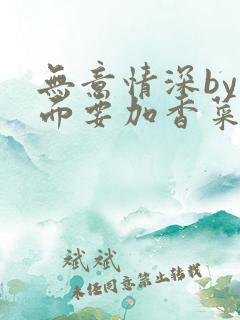 無意情深by
而要加香菜
斌斌
未任同意禁止转载